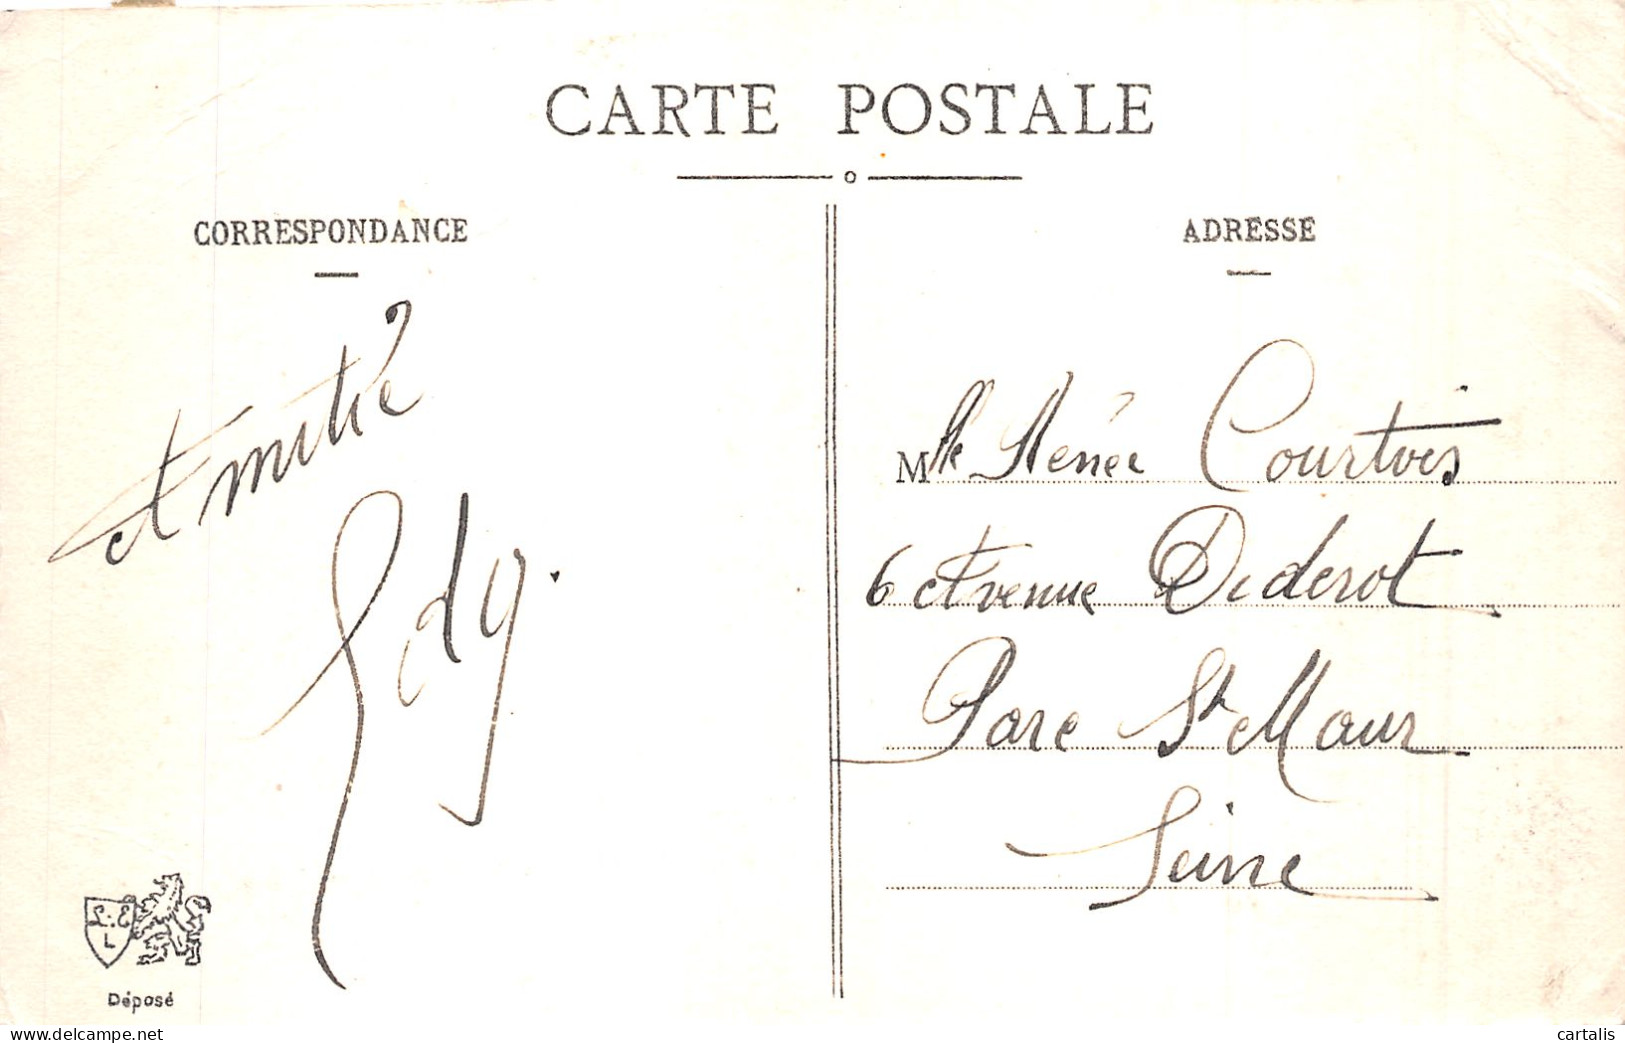 CARTE POSTALE
CORRESPONDANCE
Amitié
Edy.
L
Déposé
ADRESSE
Mlle Renée Courtois
6 Avenue Diderot
Parc St Maur
Seine
cartalis